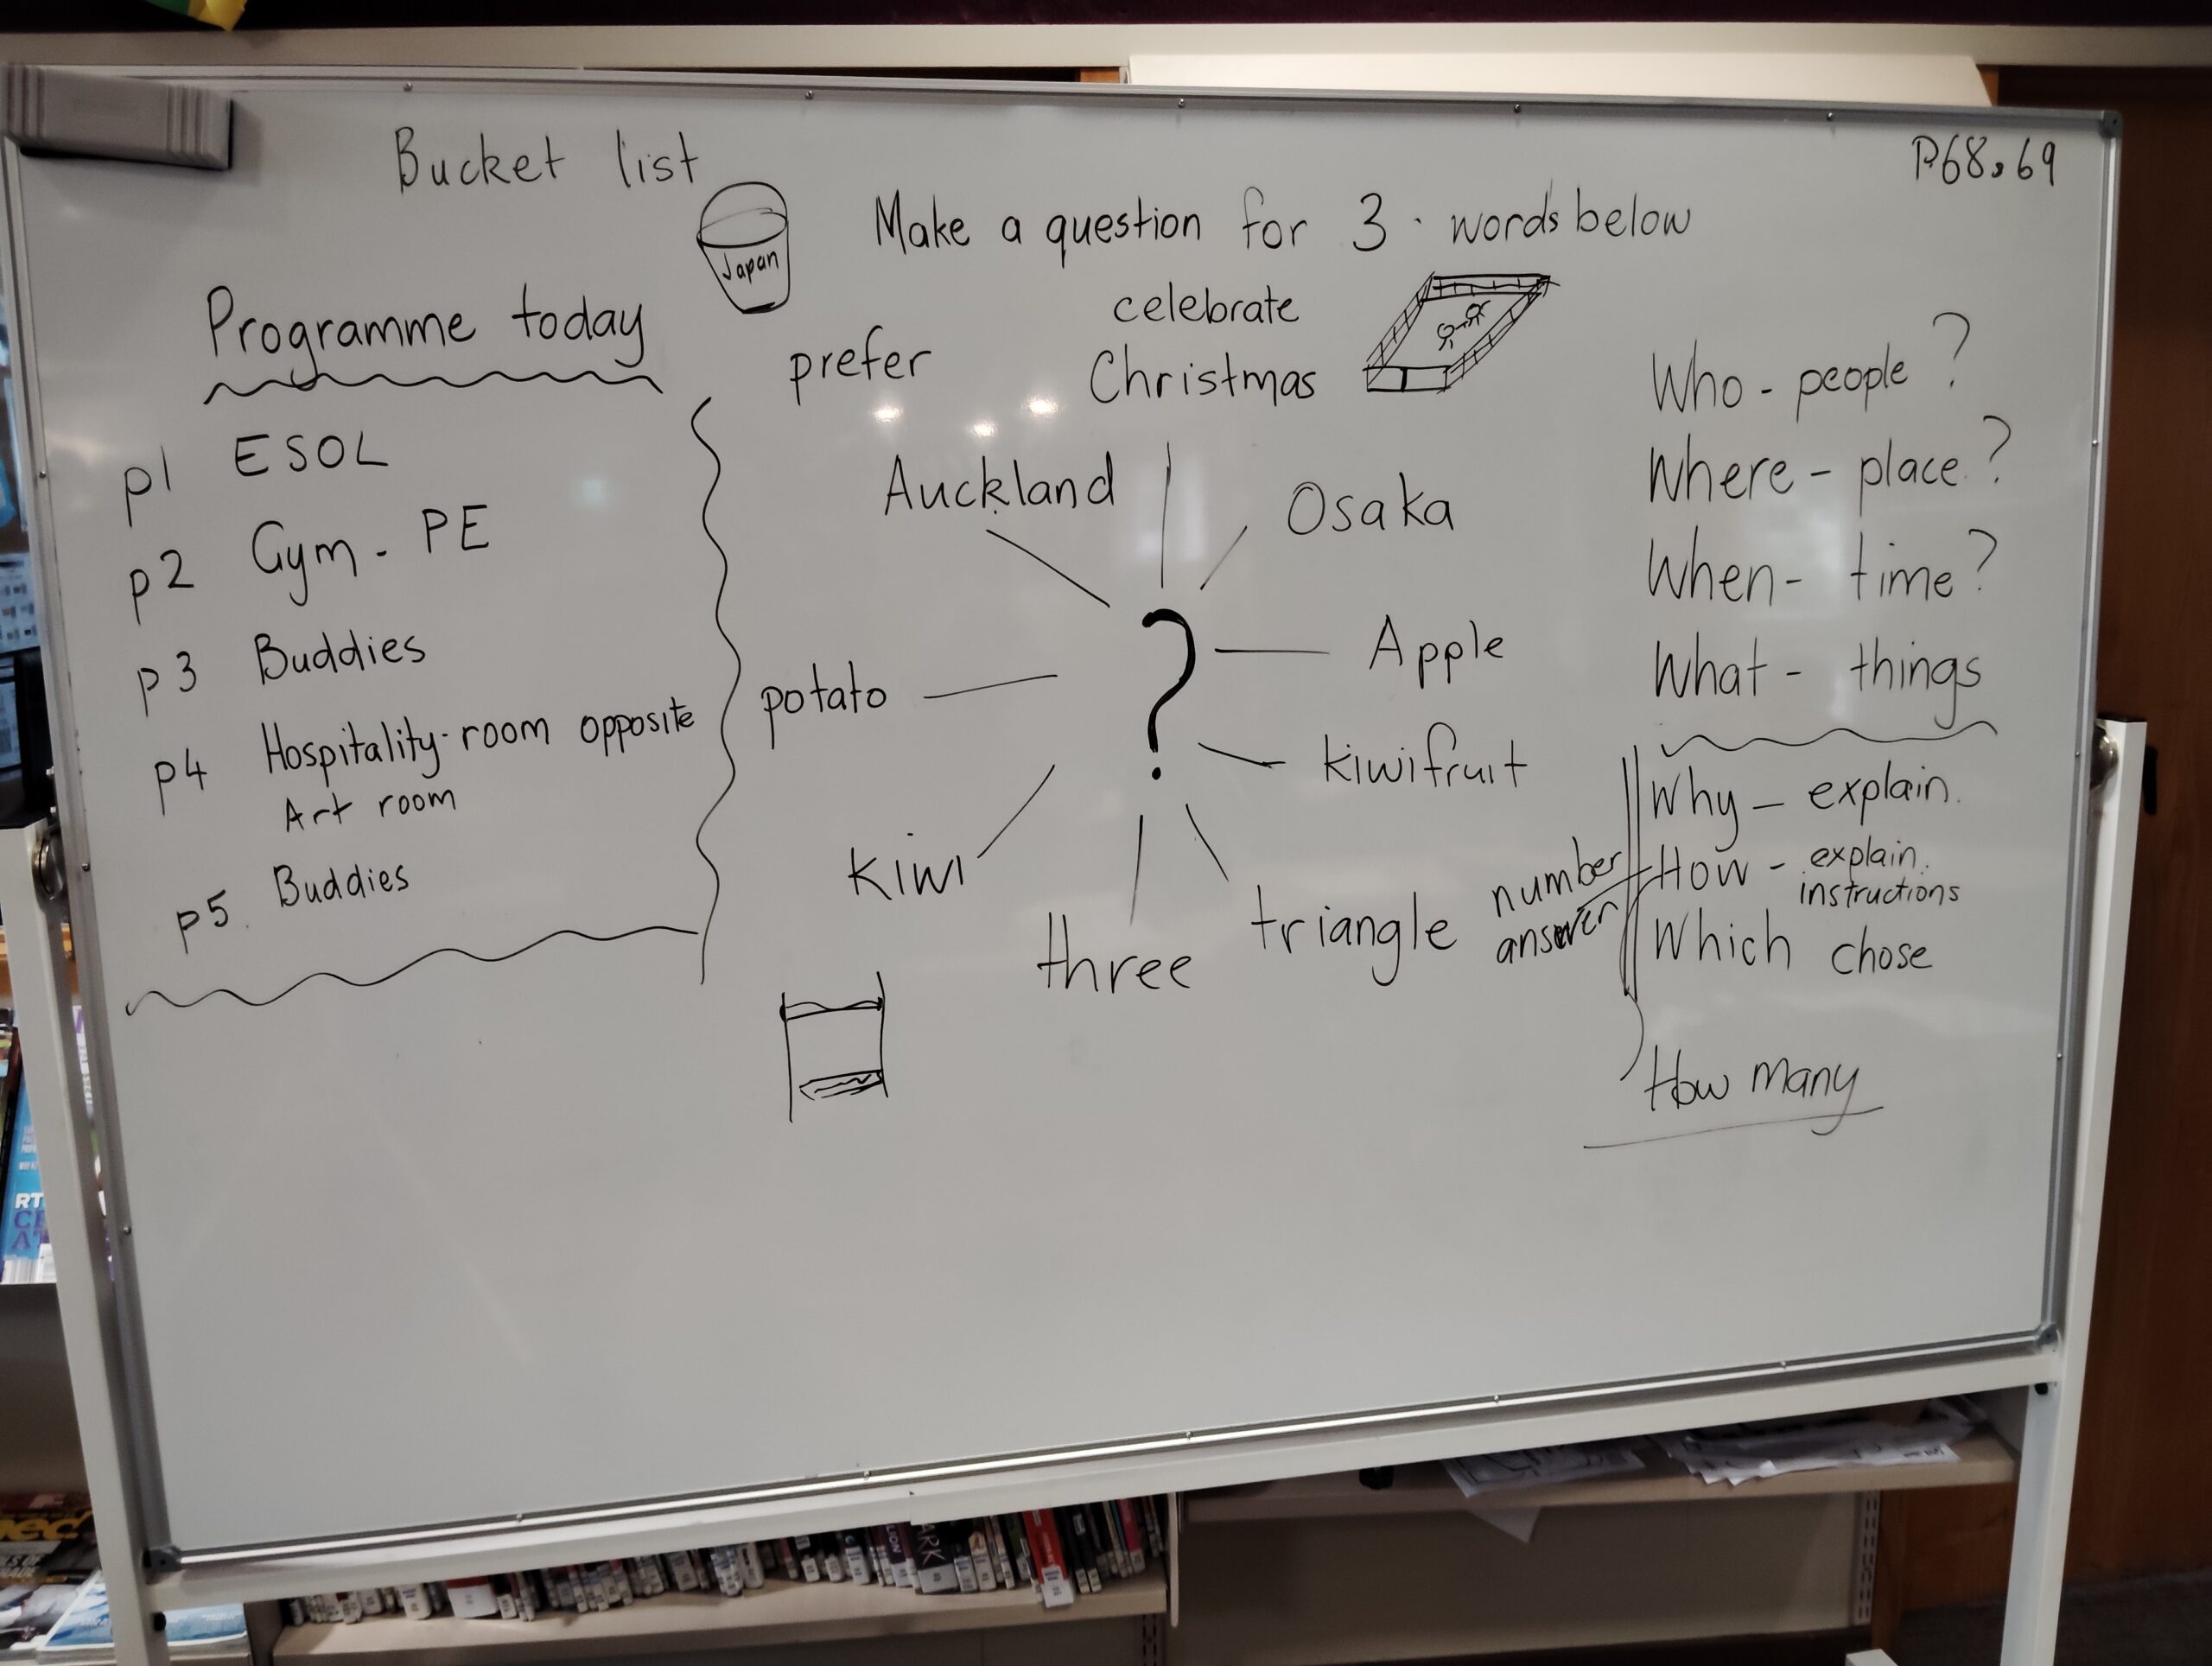 Bucket list
P68,69
Japan
Make a question for 3 words below
Programme today
p1 ESOL
p2 Gym - PE
p3 Buddies
p4 Hospitality-room opposite
Art room
p5. Buddies
prefer
celebrate
Christmas
Auckland
Osaka
Apple
potato
kiwifruit
kiwi
three
triangle
number
answer
Who - people?
Where - place?
When - time?
What - things
Why - explain.
How - explain.
instructions
Which chose
How many
RT
LION
ARK